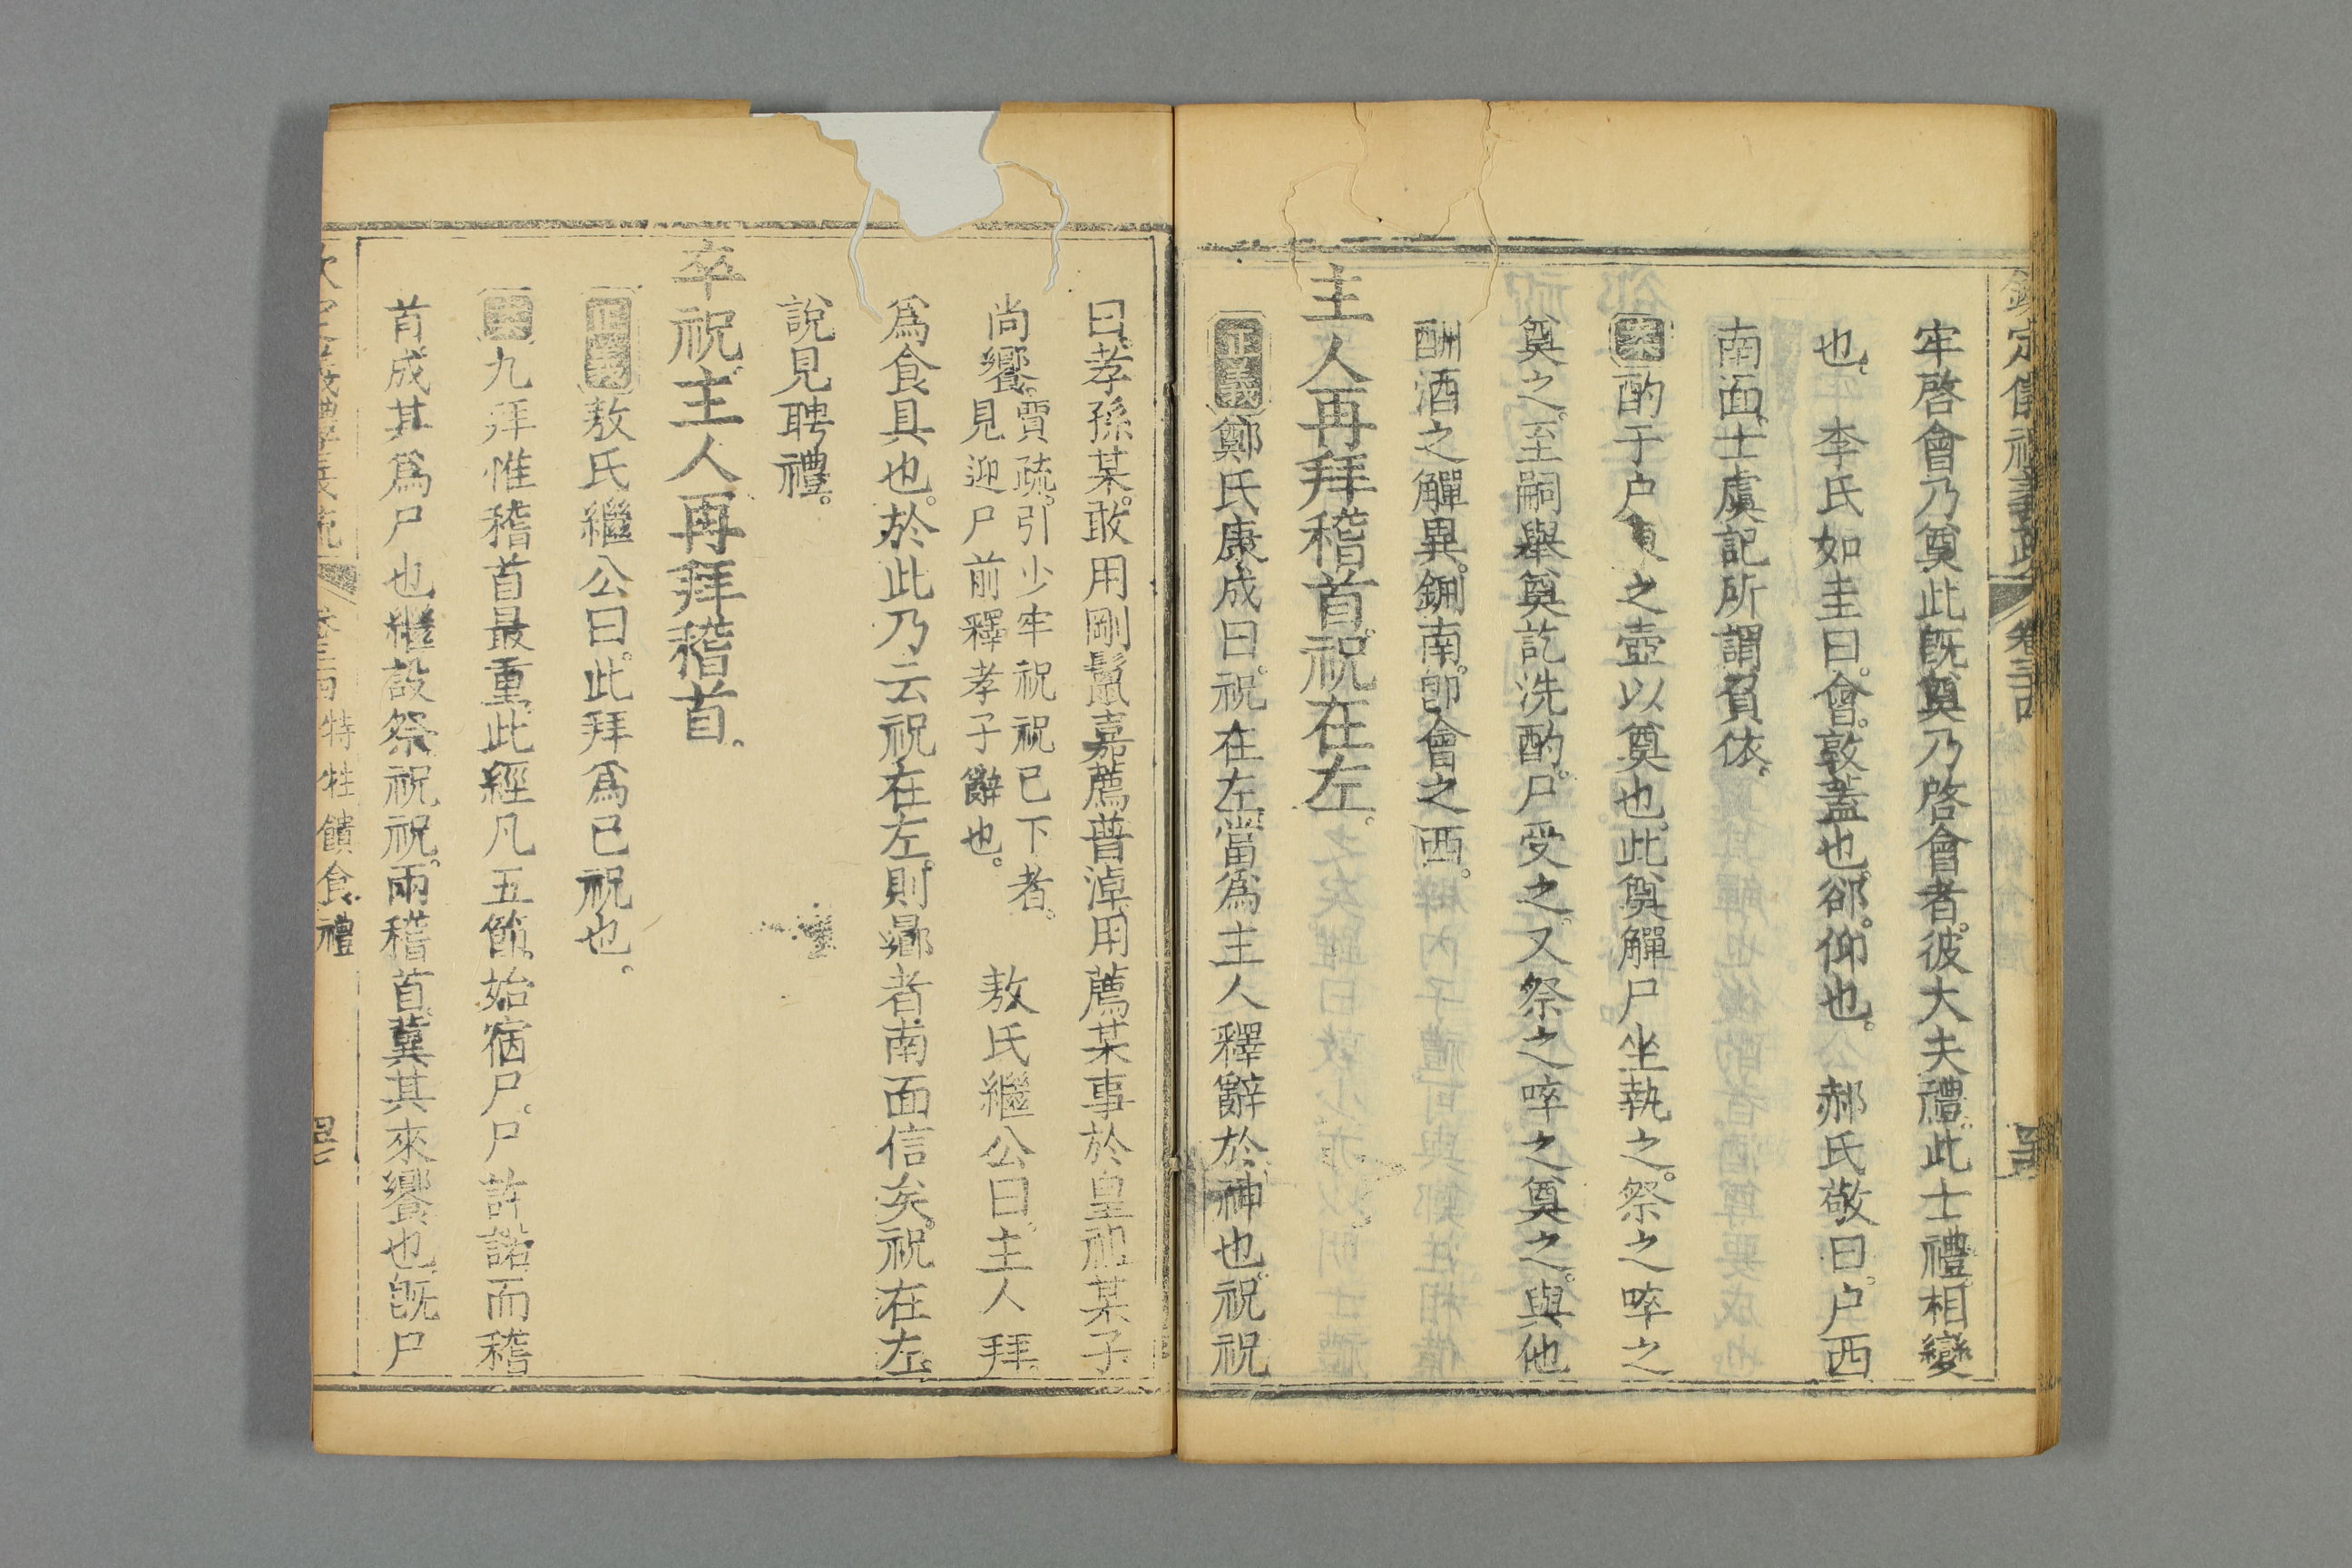 欽定儀禮義疏 卷三十四
牢啓會乃奠此旣奠乃啓會者彼大夫禮此士禮相變
也 李氏如圭曰會敦蓋也郤仰也 郝氏敬曰戶西
南面士虞記所謂負依
案酌于户東之壺以奠也此奠觶尸坐執之祭之啐之
奠之至嗣舉奠訖洗酌尸受之又祭之啐之奠之與他
酬酒之觶異鉶南卽會之西
主人再拜稽首祝在左
正義鄭氏康成曰祝在左當爲主人釋辭於神也祝祝
曰孝孫某敢用剛鬣嘉薦普淖用薦某事於皇祖某子
尚饗賈疏引少牢祝祝已下者見迎尸前釋孝子辭也 敖氏繼公曰主人拜
爲食具也於此乃云祝在左則曏者南面信矣祝在左
說見聘禮
卒祝主人再拜稽首
正義敖氏繼公曰此拜爲已祝也
案九拜惟稽首最重此經凡五節始宿尸尸許諾而稽
首成其爲尸也繼設祭祝祝兩稽首冀其來饗也旣尸
卷三十四 特牲饋食禮